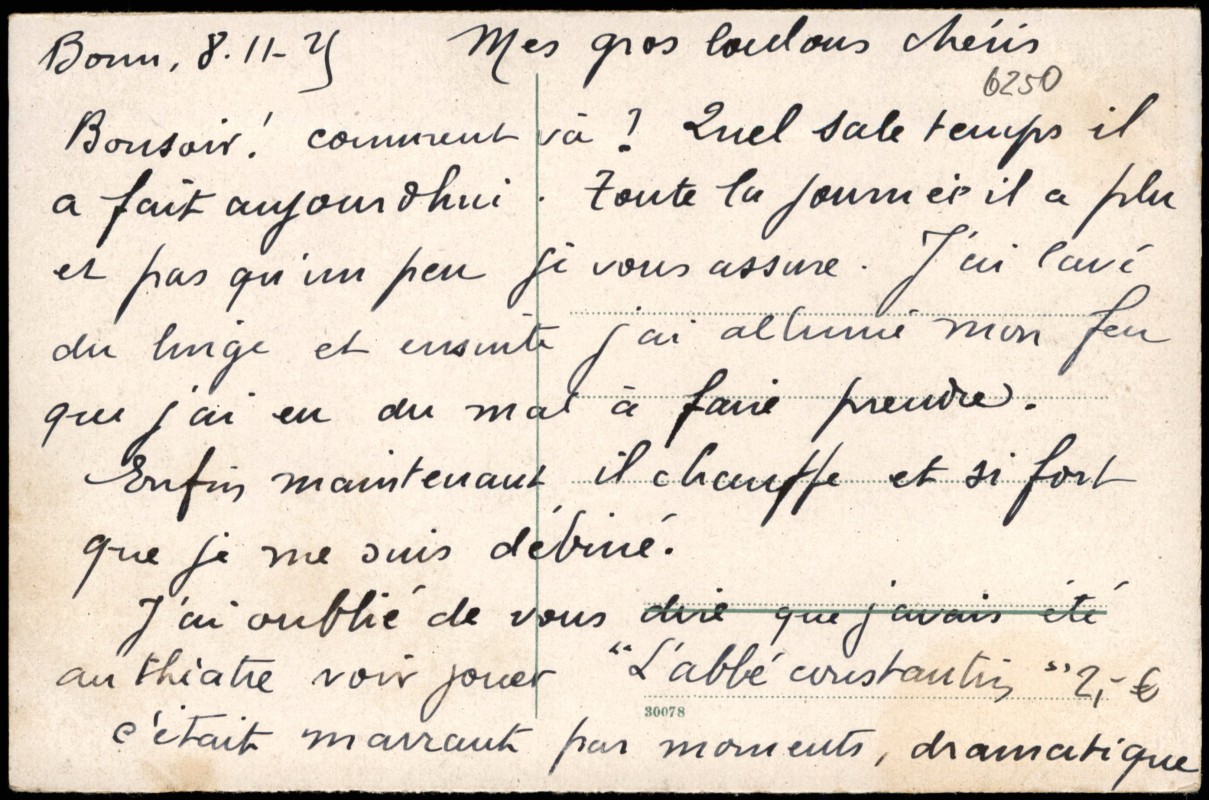 Bonn, 8.11-25 Mes gros loulous chéris
6250
Bonsoir! comment và? Quel sale temps il
a fait aujourdhui. Toute la journée il a plu
et pas qu'un peu je vous assure. J'ai lavé
du linge et ensuite j'ai allumé mon feu
que j'ai eu du mal à faire prendre.
Enfin maintenant il chauffe et si fort
que je me suis débiné.
J'ai oublié de vous dire que j'avais été
au théatre voir jouer "L'abbé constantin" 2,- €
30078
c'était marrant par moments, dramatique